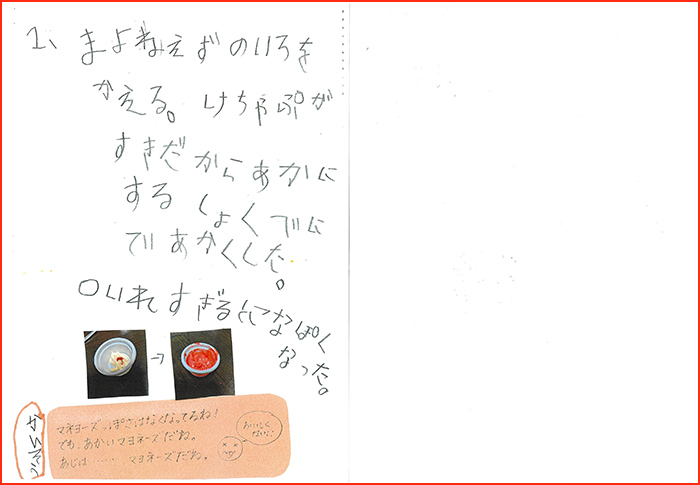 1、まよねえずのいろを
かえる。けちゃぷが
すきだからあかに
する しょくでに
でいあかくした。
○いれすぎるとこなぽく
なった。
かいろう
マヨネーズっぽさはなくなってるね!
でも、あかいマヨネーズだね。
あじは…… マヨネーズだね。
おいしく
ないね